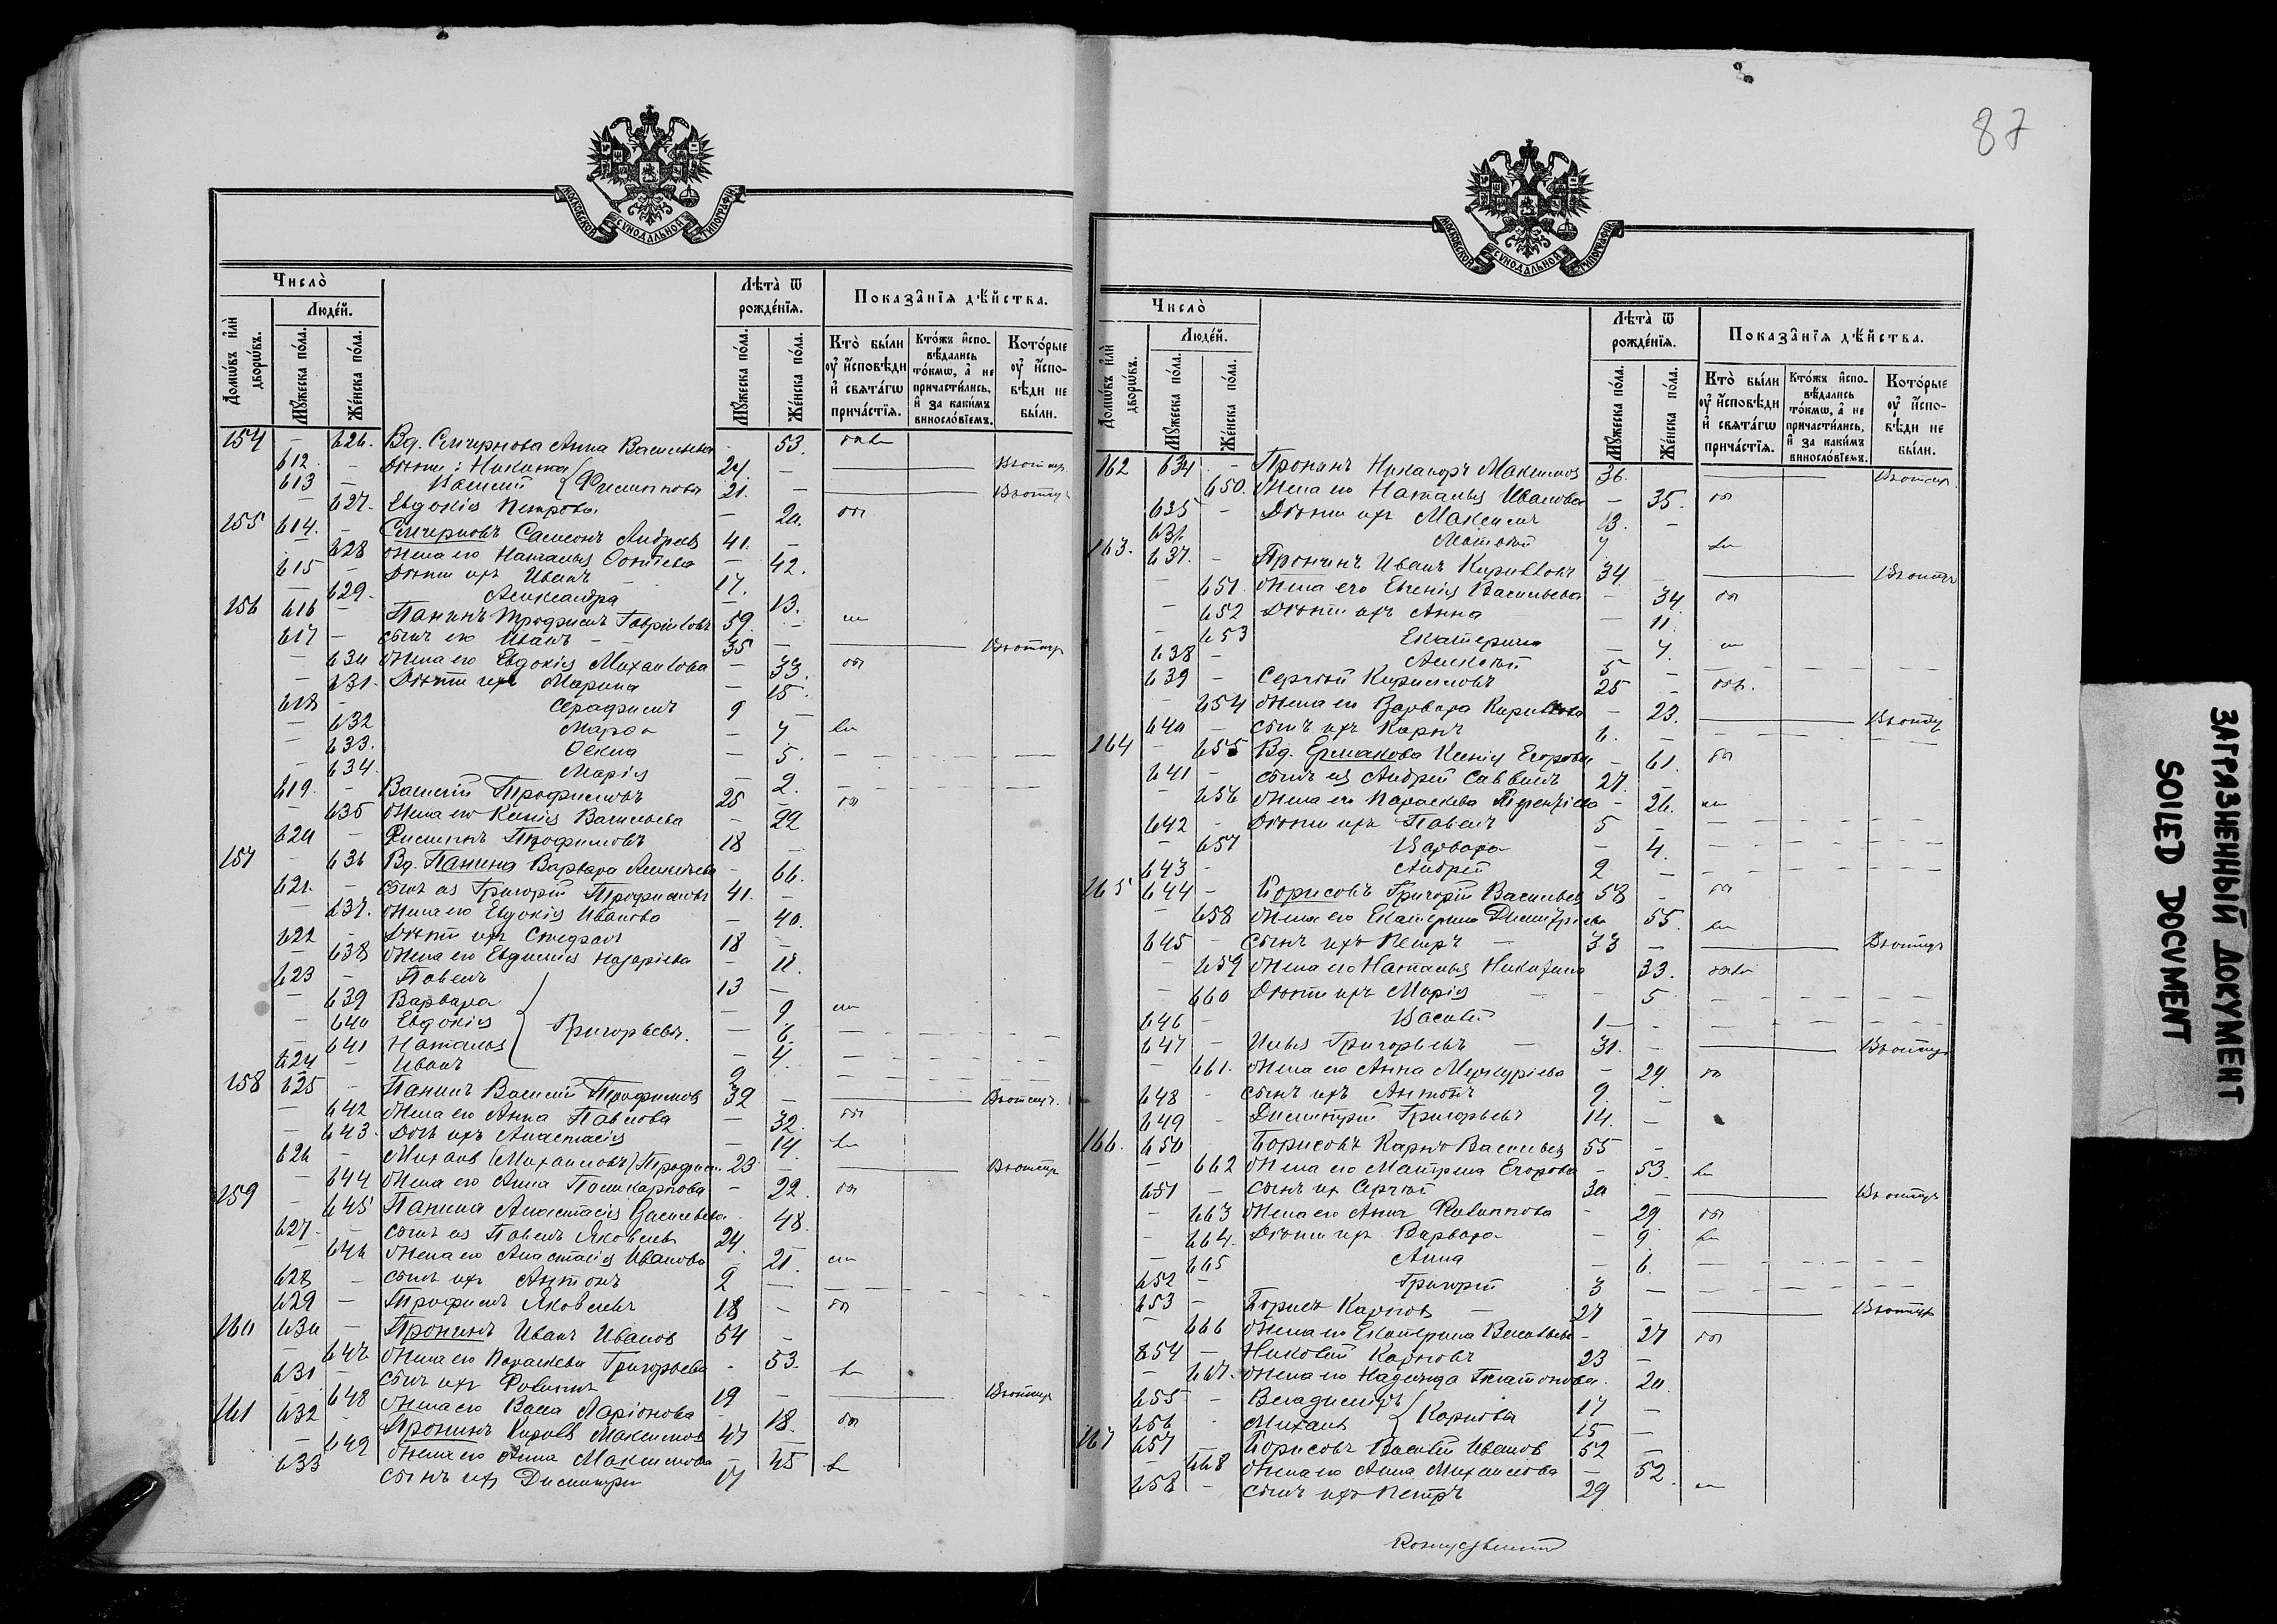 МОСКОВСКОЙ СѴНОДАЛЬНОЙ ТИПОГРАФІИ
Число̀
Людéй.
Домѡ́въ и҆лѝ дворѡ́въ.
Мꙋ́жеска по́ла.
Же́нска по́ла.
Лѣ́та ѿ рожде́нїѧ.
Мꙋ́жеска по́ла.
Же́нска по́ла.
Показа̑нїѧ дѣ́йства.
Кто̀ бы́ли ᲂу҆ и҆́сповѣди и҆ свѧта́гѡ прича́стїѧ.
Кто́жъ и҆спо-вѣ́дались то́кмѡ, а҆ не причасти́лись, и҆ за каки́мъ винословїемъ.
Кото́рые ᲂу҆ и҆спо-вѣди не бы́ли.
154 — 626. Вд. Смирнова Анна Васильева — 53.
612. — Дѣти: Никита } Филипповы 24. —
613 — Василій 21. —
— 627. Евдокія Петрова — 20.
155 614. — Смирновъ Самсонъ Андреев 41. —
— 628 Жена его Наталья — 42.
615 — Дѣти ихъ Иванъ 17.
— 629. Александра — 13.
156 616 — Панинъ Трофимъ Гавріиловъ 59 —
617 — Сынъ его Иванъ 35 —
— 630 Жена его Евдокія Михаилова — 33.
— 631. Дѣти ихъ Марина — 15.
618 — Серафимъ 9 —
— 632 Марѳа — 7
— 633. — 5.
— 634. Марія — 2.
619. — Василій Трофимовъ 25 —
— 635 Жена его Ксенія Васильева — 22
620 — Филиппъ Трофимовъ 18 —
157 — 636 Вд. Панина Варвара — 66.
621. — Сынъ ея Григорій Трофимовъ 41. —
— 637. Жена его Евдокія Иванова — 40.
622 — Дѣти ихъ Стефанъ 18 —
— 638 Жена его Евфимія Назаріева — 18.
623 — Павелъ 13 —
— 639 Варвара — 9
— 640 Евдокія } Григорьевы. — 6.
— 641 Наталья — 4.
624 — Иванъ 2
158 625 — Панинъ Василій Трофимов 32 —
— 642 Жена его Анна Павлова — 32.
— 643. Дочь ихъ Анастасія — 14.
626 — Михаилъ (Михаиловъ) 23 —
— 644 Жена его Анна Поликарпова — 22.
159 — 645 Панина Анастасія Васильева — 48.
627. — Сынъ ея Павелъ Яковлевъ 24.
— 646 Жена его Анастасія Иванова — 21.
628 — Сынъ ихъ Антонъ 2 —
629 — Трофимъ Яковлевъ 18 —
160 630 — Пронинъ Иванъ Иванов 54 —
— 647 Жена его Параскева Григорьева — 53.
631 — Сынъ ихъ Филиппъ 19 —
— 648 Жена его Васса Ларіонова — 18.
161 632 — Пронинъ Кириллъ Максимов 47 —
— 649 Жена его Анна Максимова — 45
633 Сынъ ихъ Димитрій 17
87
МОСКОВСКОЙ СѴНОДАЛЬНОЙ ТИПОГРАФІИ
Число̀
Людéй.
Домѡ́въ и҆лѝ дворѡ́въ.
Мꙋ́жеска по́ла.
Же́нска по́ла.
Лѣ́та ѿ рожде́нїѧ.
Мꙋ́жеска по́ла.
Же́нска по́ла.
Показа̑нїѧ дѣ́йства.
Кто̀ бы́ли ᲂу҆ и҆́сповѣди и҆ свѧта́гѡ прича́стїѧ.
Кто́жъ и҆спо-вѣ́дались то́кмѡ, а҆ не причасти́лись, и҆ за каки́мъ винословїемъ.
Кото́рые ᲂу҆ и҆спо-вѣди не бы́ли.
162 634 — Пронинъ Никаноръ Максимов 36.
— 650. Жена его Наталья Иванова — 35.
635 — Дѣти ихъ Максимъ 13. —
636 Матвѣй 7
163. 637. — Пронинъ Иванъ Кирилловъ 34 —
— 651 Жена его Евгенія Васильева — 34
— 652 Дѣти ихъ Анна — 11.
— 653 Екатерина — 7.
638 — Алексѣй 5 —
639 — Сергѣй Кирилловъ 25 —
— 654 Жена его Варвара Кириллова — 23.
640 — Сынъ ихъ Карпъ 1. —
164 — 655 Вд. Ермакова Ксенія Егорова — 61.
641 — Сынъ ея Андрей Саввинъ 27. —
— 656 Жена его Параскева — 26.
642 — Дѣти ихъ Павелъ 5 —
— 657 Варвара — 4.
643 — Андрей 2 —
165 644 — Борисовъ Григорій Васильев 58 —
— 658 Жена его Екатерина Димитріева 55.
645 — Сынъ ихъ Петръ 33 —
— 659 Жена его Наталья Никитина 33.
— 660 Дѣти ихъ Марія — 5
646 — Василій 1 —
647 — Илья Григорьевъ 31. —
— 661. Жена его Анна Меркуріева — 29
648 — Сынъ ихъ Антонъ 9. —
649 — Димитрій Григорьевъ 14. —
166. 650 — Борисовъ Карпъ Васильев 55 —
— 662 Жена его Матрена Егорова — 53.
651 — Сынъ их Сергѣй 30 —
— 663 Жена его Анна Филиппова — 29
— 664. Дѣти ихъ Варвара — 9.
— 665 Анна — 6.
652 — Григорій 3 —
653 — Борисъ Карпов 27 —
— 666 Жена его Екатерина — 27
654 — Николай Карповъ 23 —
— 667. Жена его Надежда Платонова — 20.
655 — Владиміръ } Карповы 17 —
656 — Михаилъ 15 —
167 657 — Борисовъ Василій Иванов 52 —
— 668 Жена его Анна Михаилова — 52.
658 — Сынъ ихъ Петръ 29
ЗАГРЯЗНЕННЫЙ ДОКУМЕНТ
SOILED DOCUMENT